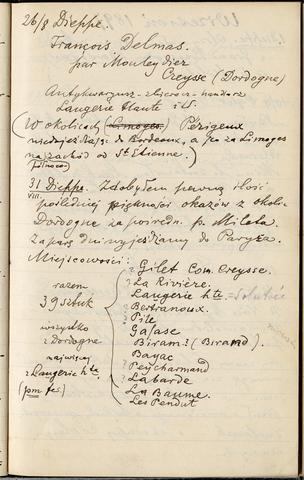 26/8 Dieppe.
François Delmas.
par Mouleydier
Creysse (Dordogne)
Antykwaryusz - zbieracz - handlarz
Laugerie Haute i t.d.
(W okolicach (Limoges) Périgeux
niedojeżdżając do Bordeaux, a za Limoges
na zachód od St Etienne.)
północ
31 Dieppe. Zdobyłem pewną ilość
VIII.
pośledniej piękności okazów z okolic
Dordogne za pośredn. p. Miłata.
Za parę dni wyjeżdżamy do Paryża.
Miejscowości:
razem
39 sztuk
wszystko
z Dordogne
najwięcej
z Laugerie hte
? Gilet Com. Creysse.
? La Rivière.
Laugerie hte = Solutré
? Bertranoux.
? Pile
? Galase
Biram? (Birand).
Bayac
? Peycharmand
? Labarde
La Baume.
Les Pendut